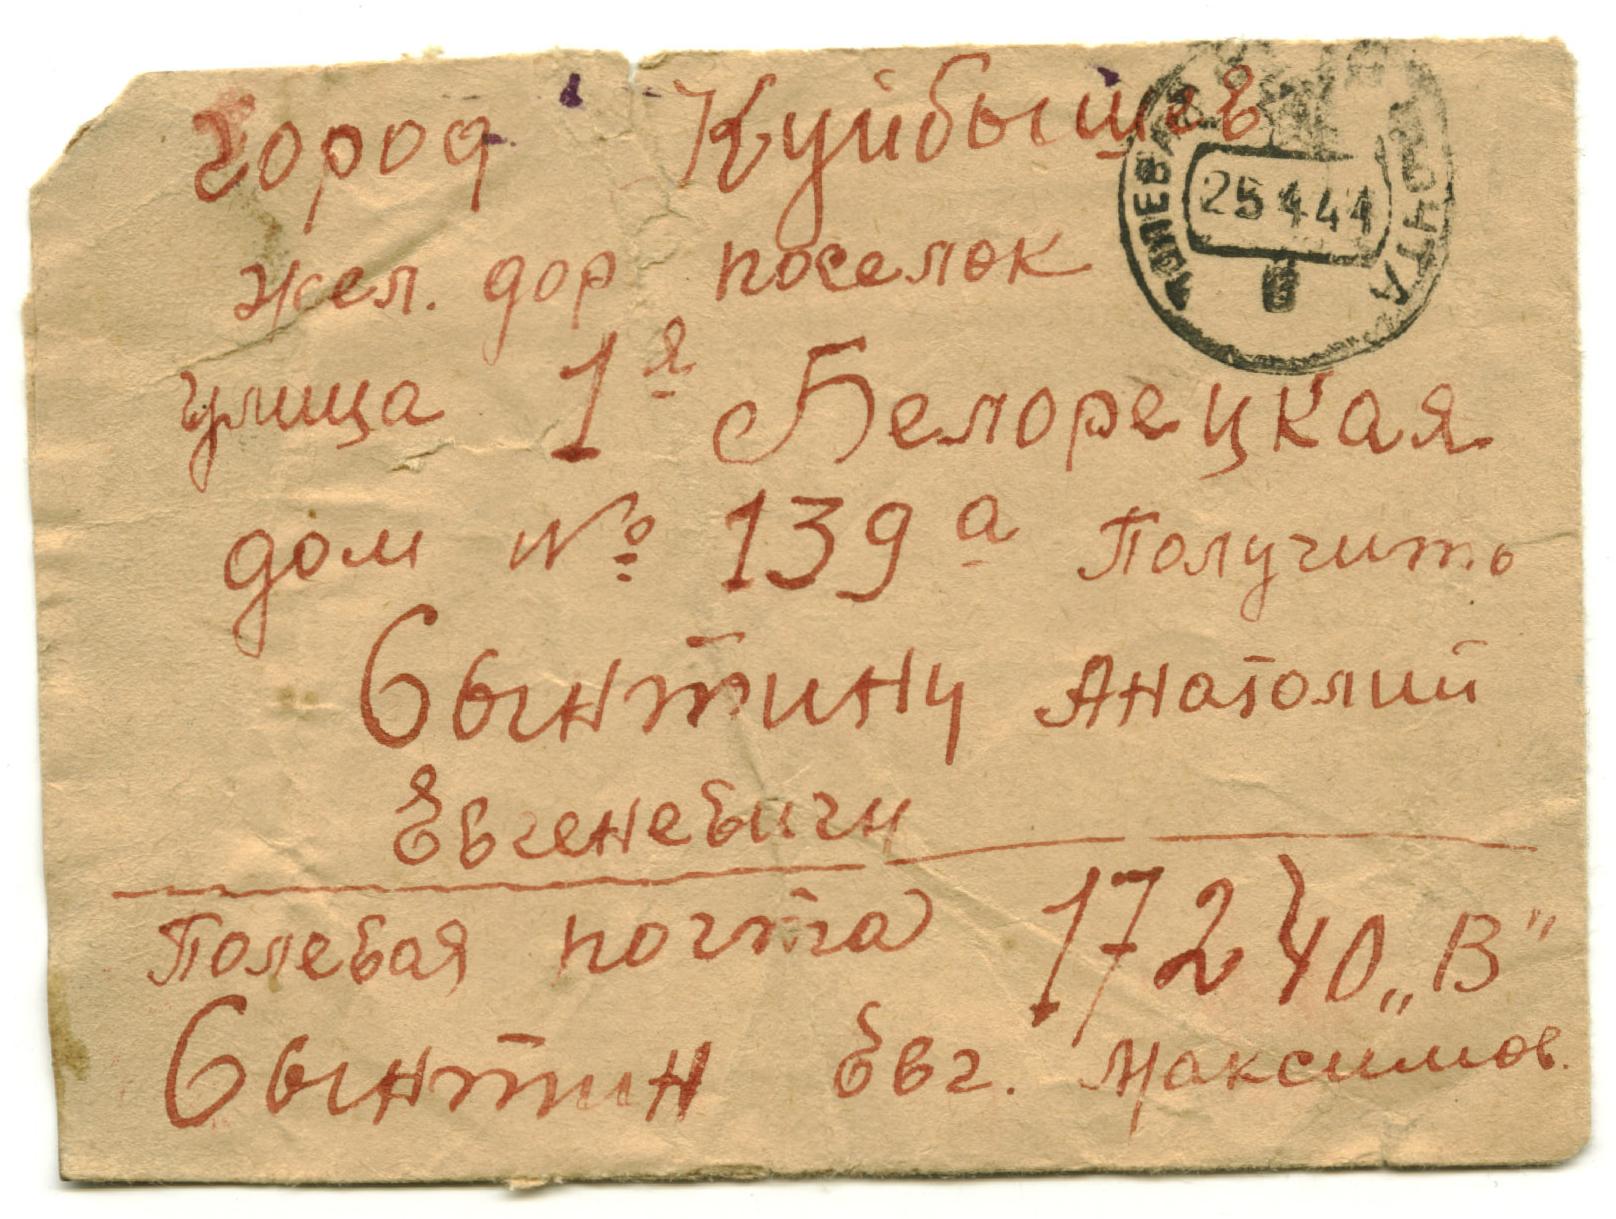 город Куйбышев
жел. дор поселок
улица 1я Белорецкая
дом № 139а Получить
Сынтину Анатолий
Евгеневичу
Полевая почта 17240 „В"
Сынтин Евг. Максимов.
ПОЛЕВАЯ ПОЧТА
25 4 44